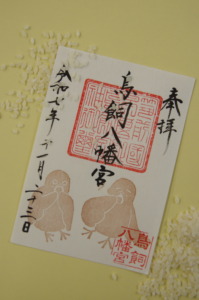 奉拝
鳥飼八幡宮
令和七年十一月二十三日
鳥飼
八幡宮